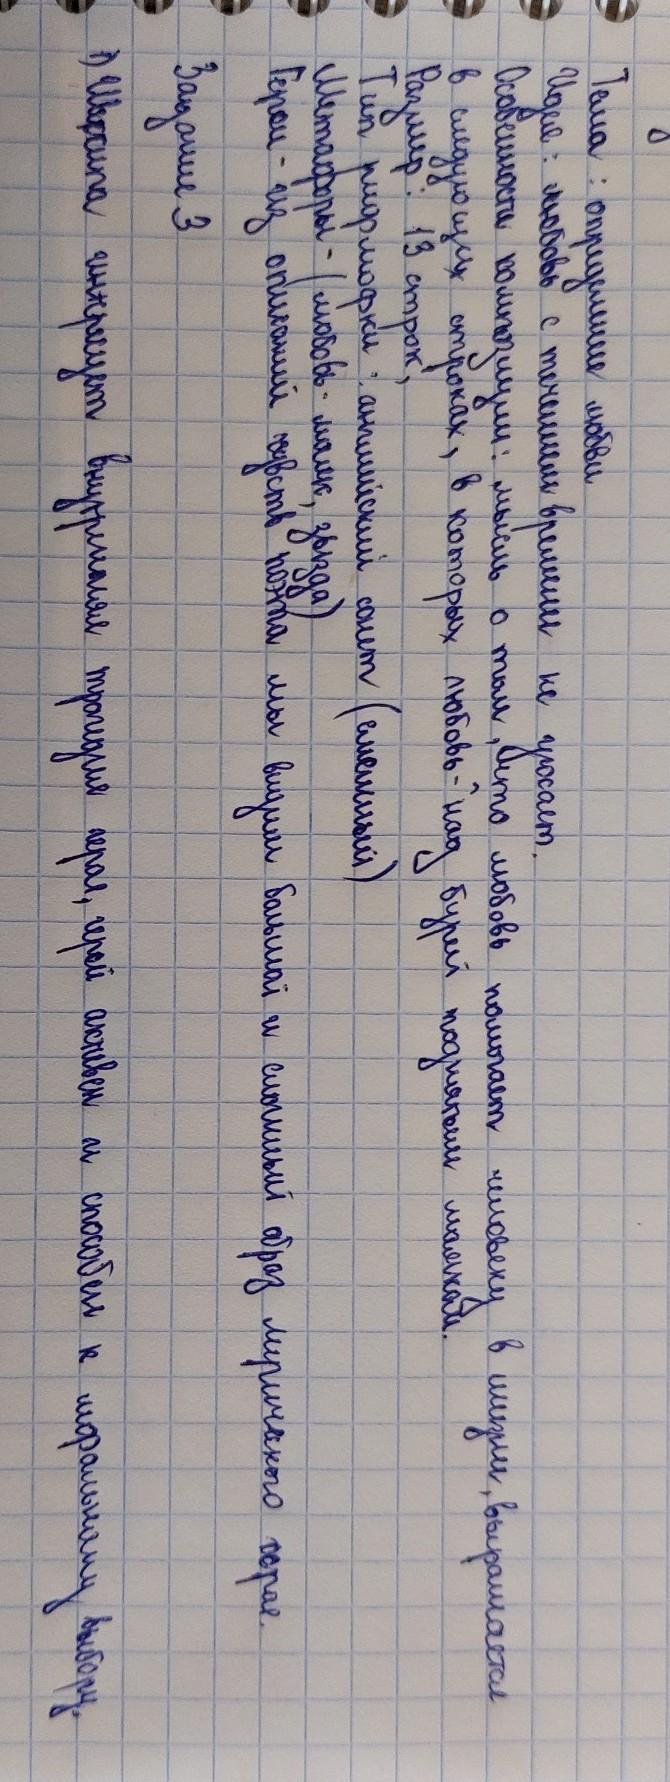 Тема: определение любви
Идея: любовь с течением времени не угасает.
Особенности композиции: мысль о том, что любовь помогает человеку в жизни, выражается
в следующих строках, в которых любовь-"над бурей поднятым маяком.
Размер: 13 строк,
Тип рифмофки: английский сонет (смежный)
Метафоры - (любовь - маяк, звезда)
Герои - из описаний чувств поэта мы видим большой и сложный образ лирического героя.
Задание 3
1) Шекспира интересует внутренняя трагедия героя, герой активен и способен к моральному выбору,